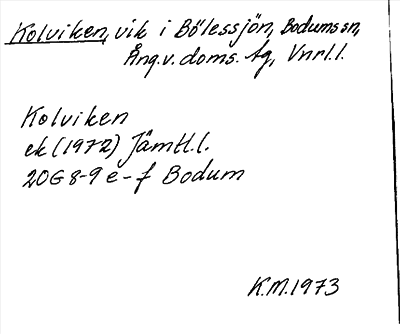 Kolviken, vik i Bölessjön, Bodums sn,
Ång.v. doms. tg, Vnrl.l.
Kolviken
ek (1972) Jämtl.l.
20G 8-9 e-f Bodum
K.M. 1973